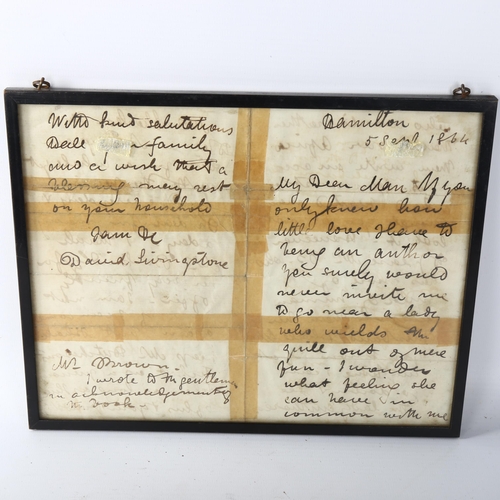 Hamilton
5 Sept 1864
My Dear Man If you
only knew how
little love I have to
being an author
you surely would
never invite me
to go near a lady
who wields the
quill out of mere
fun - I wonder
what feeling she
can have in
common with me
With kind salutations
family
and a wish that a
blessing may rest
on your household
I am &c
David Livingstone
Mr Brown
I wrote to the gentleman
in acknowledgement of
book -